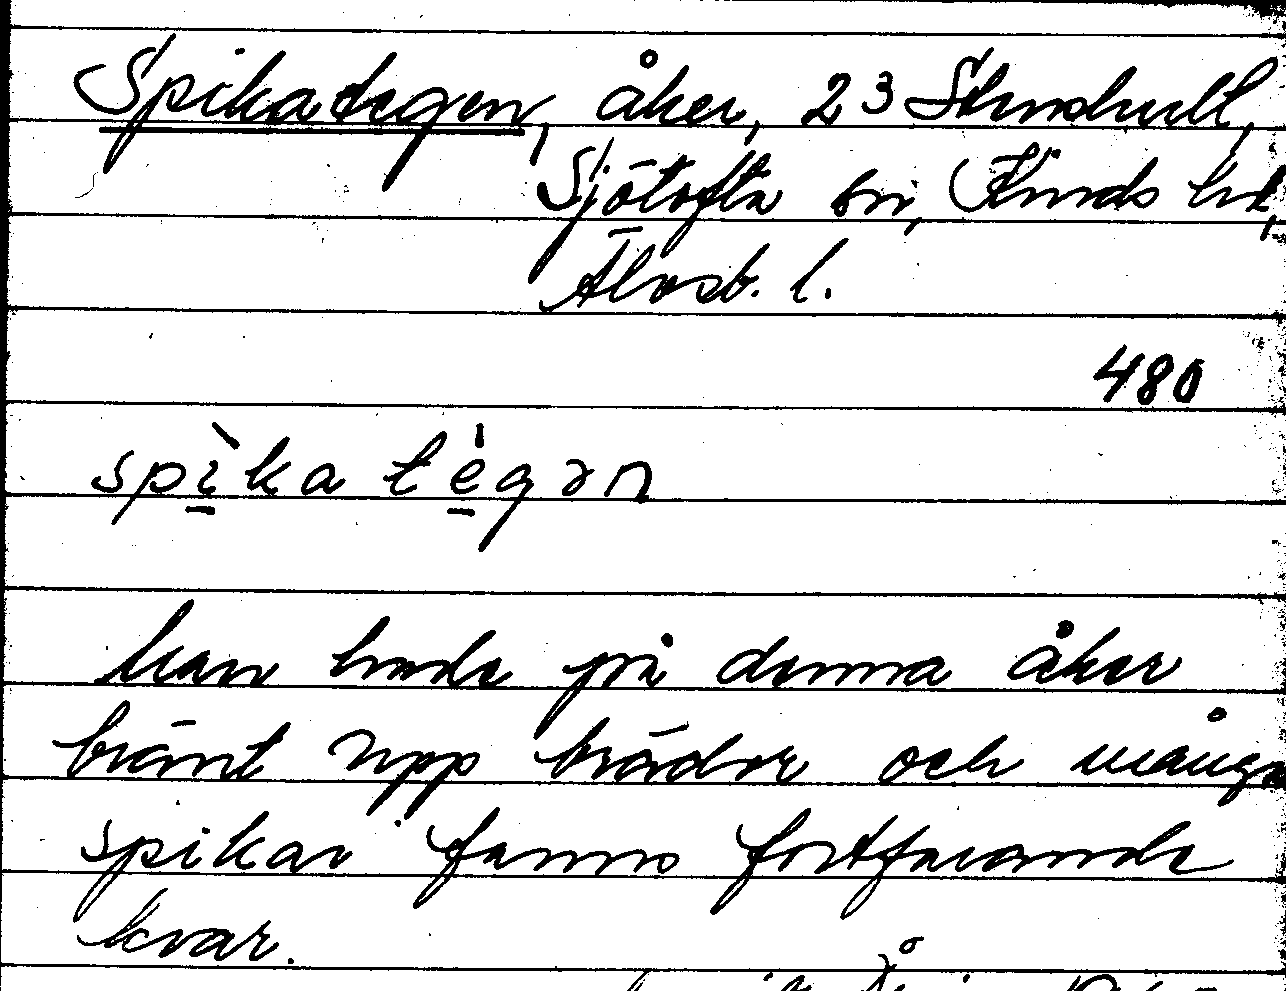 Spikategen, åker, 23 Stenshult,
Sjötofta sn, Kinds hd,
Älvsb. l.
480
spìka tégən
han hade på denna åker
bränt upp brädor och många
spikar fanns fortfarande
kvar.